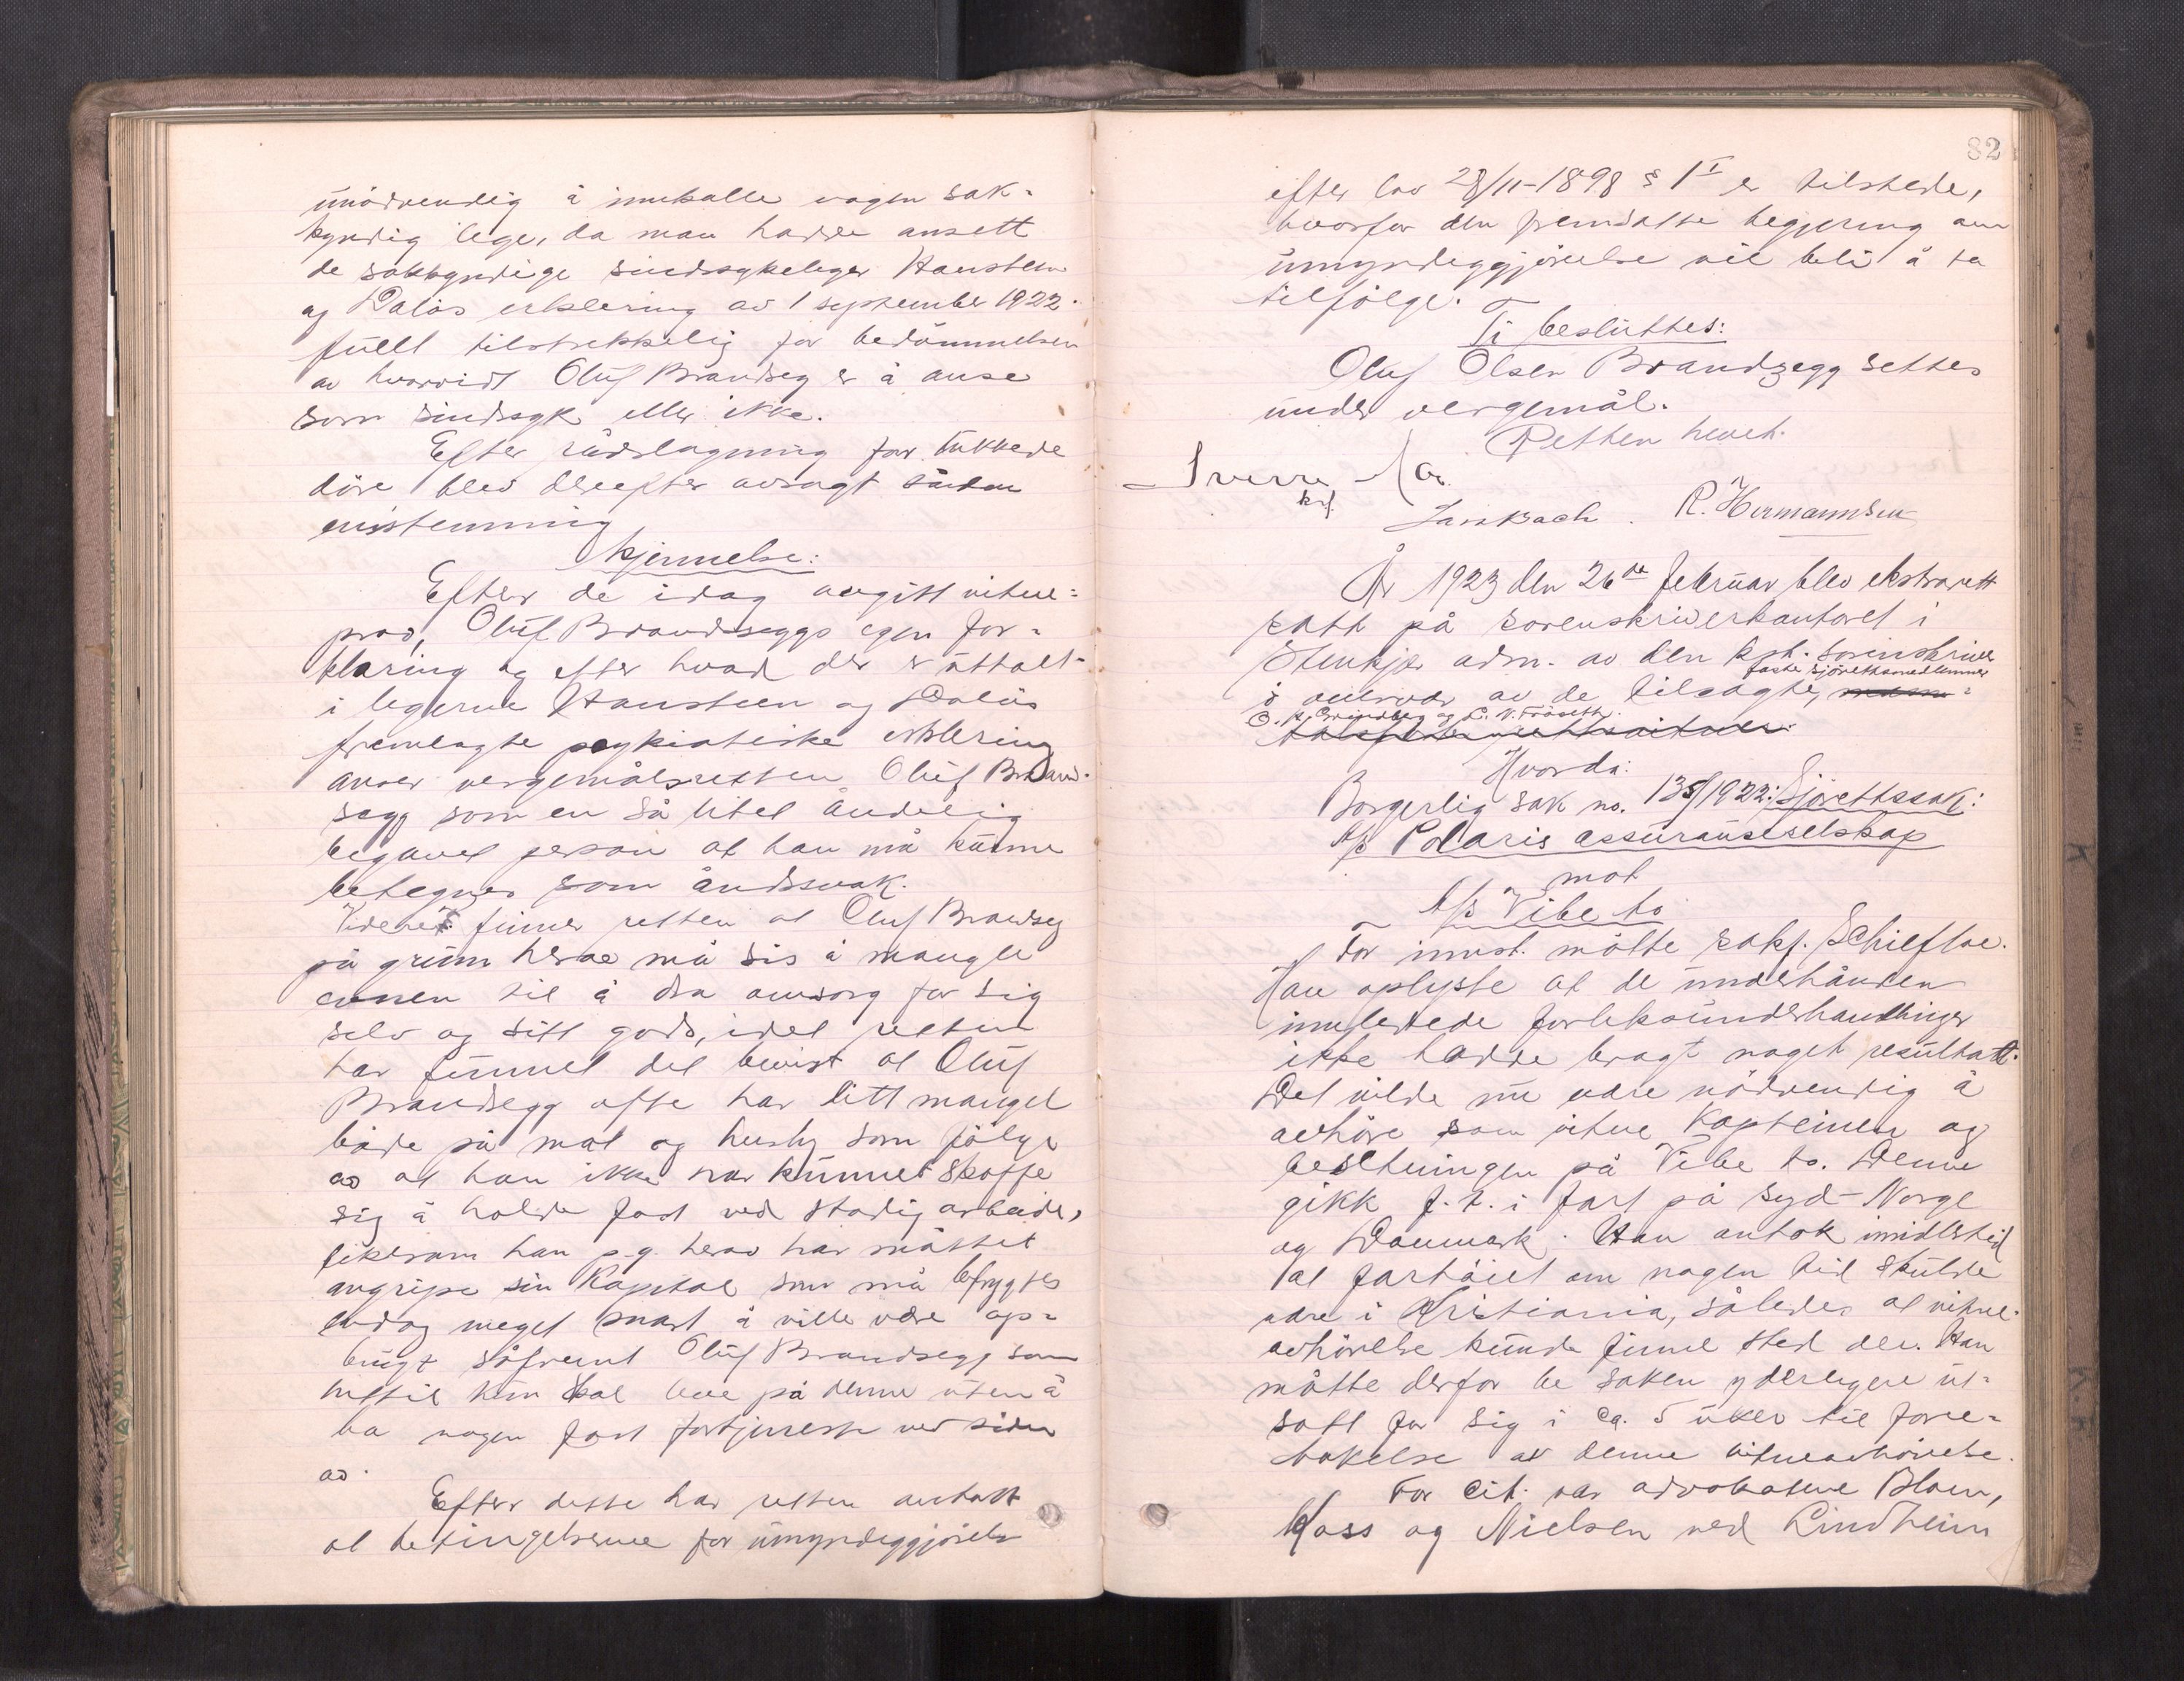 unödvendig å innkalle nogen sak-
kyndig lege, da man hadde ansett
de sakkyndige sindssykeleger Hansteen
og Daløs erklæring av 1 september 1922.
fullt tilstrekkelig for bedömmelsen
av hvorvidt Oluf Brandseg er å anse
som sindssyk eller ikke.
Efter rådslagning for lukkede
döre blev derefter avsagt sådan
enstemmig
kjennelse:
Efter de idag avgitt vitne-
prov, Oluf Brandseggs egen for-
klaring og efter hvad der er uttalt
i legerne Hansteen og Daløs
fremlagte psykiatriske erklæring
anser vergemålsretten Oluf Brand-
segg som en så litet åndelig
begavet person at han må kunne
betegnes som åndssvak.
Videre finner retten at Oluf Brandseg
på grunn herav må sis å mangle
evnen til å dra omsorg for sig
selv og sitt gods, idet retten
har funnet det bevist at Oluf
Brandsegg ofte har litt mangel
både på mat og husly som fölge
av at han ikke har kunnet skaffe
sig å holde fast ved stadig arbeide,
likesom han p.g. herav har måttet
angripe sin kapital som må befryktes
endog meget snart å ville være op-
brugt såfremt Oluf Brandsegg som
hittil kun skal leve på denne uten å
ha nogen fast fortjeneste ved siden
av.
Efter dette har retten antatt
at betingelserne for umyndiggjörelse
82
efter lov 28/11-1898 § 1 I er tilstede,
hvorfor den fremsatte begjering om
umyndiggjörelse vil bli å ta
tilfölge.
Ti besluttes:
Oluf Olsen Brandzegg settes
under vergemål.
Retten hevet.
Sverre
kst
R. Hermannsen
År 1923 den 26de februar blev ekstrarett
satt på sorenskriverkontoret i
Stenkjær adm. av den kst. sorenskriver
faste sjörettsmedlemmer
i nærvær av de tilsagte,
O. K. Grindberg og L. N. Fröseth.
Hvorda:
Borgerlig sak no. 135/1922: Sjörettssak:
A/s Polaris assuranseselskap
mot
A/s Vibe to
For innst. mötte sakf. Schiefloe.
Han oplyste at de underhånden
innledede forliksunderhandlinger
ikke hadde bragt noget resultatt.
Det vilde nu være nödvendig å
avhöre som vitne kapteinen og
besetningen på Vibe to. Denne
gikk f. t. i fart på Syd-Norge
og Danmark. Han antok imidlertid
at fartöiet om nogen tid skulde
være i Kristiania, således at vitne-
avhörelse kunde finne sted der. Han
måtte derfor be saken yderligere ut-
satt for sig i ca. 5 uker til fore-
takelse av denne vitneavhörelse.
For cit. var advokatene Blom,
Koss og Nielsen ved Lindheim